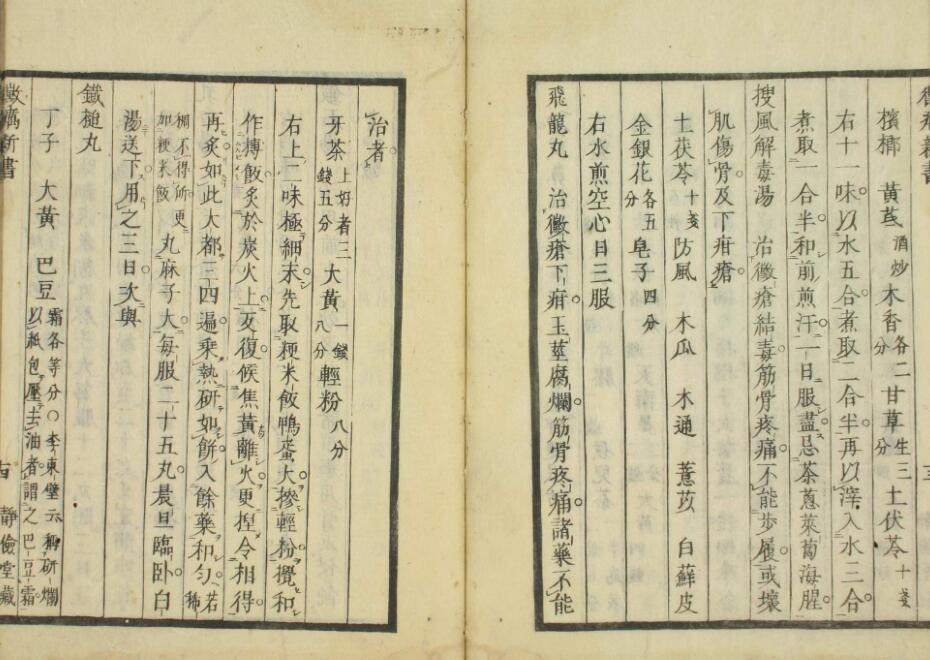 檳榔 黃芪酒炒木香各二分甘草生三分土伏苓十戔
右十一味以水五合煮取二合半再以滓入水三合
煮取一合半和前煎汗一日服盡忌茶蔥萊菔海腥
搜風解毒湯 治黴瘡結毒筋骨疼痛不能步履或壞
肌傷骨及下疳瘡
土茯苓十戔防風 木瓜 木通 薏苡 白蘚皮
金銀花各五分皂子四分
右水煎空心日三服
飛龍丸 治黴瘡下疳玉莖腐爛筋骨疼痛諸藥不能
治者
牙茶上好者三錢五分大黃一錢八分輕粉八分
右上二味極細末先取粳米飯鴨蛋大摻輕粉攪和
作槫飯炙於炭火上反復候焦黃離火更揑令相得
再炙如此大都三四遍乘熱研如餅入餘藥和勻若稀
稠不得所更加粳米飯丸麻子大每服二十五丸晨旦臨臥白
湯送下用之三日次與
鐵槌丸
丁子 大黃 巴豆霜各等分〇李東壁云研爛以紙包壓去油者謂之巴豆霜
新書
靜儉堂藏